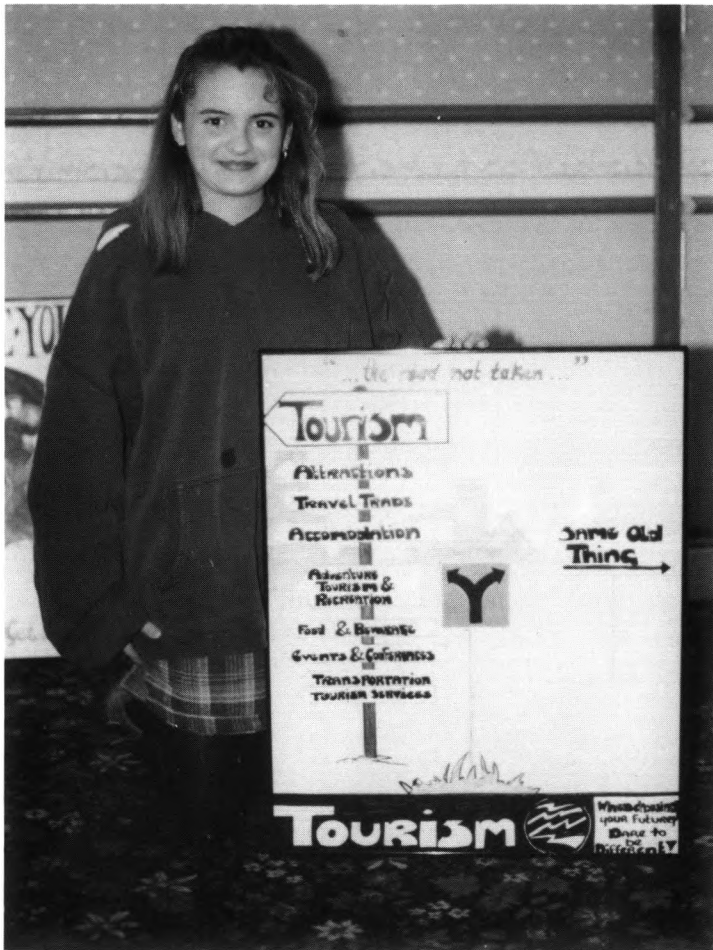 "...the road not taken..."
Tourism
Attractions
Travel Trade
Accomodation
Adventure
Tourism &
Recreation
Food & Beverage
Events & Conferences
Transportation
Tourism Services
Same Old
Thing
Tourism
When choosing
your Future?
Dare to
be
Different!
-YOU